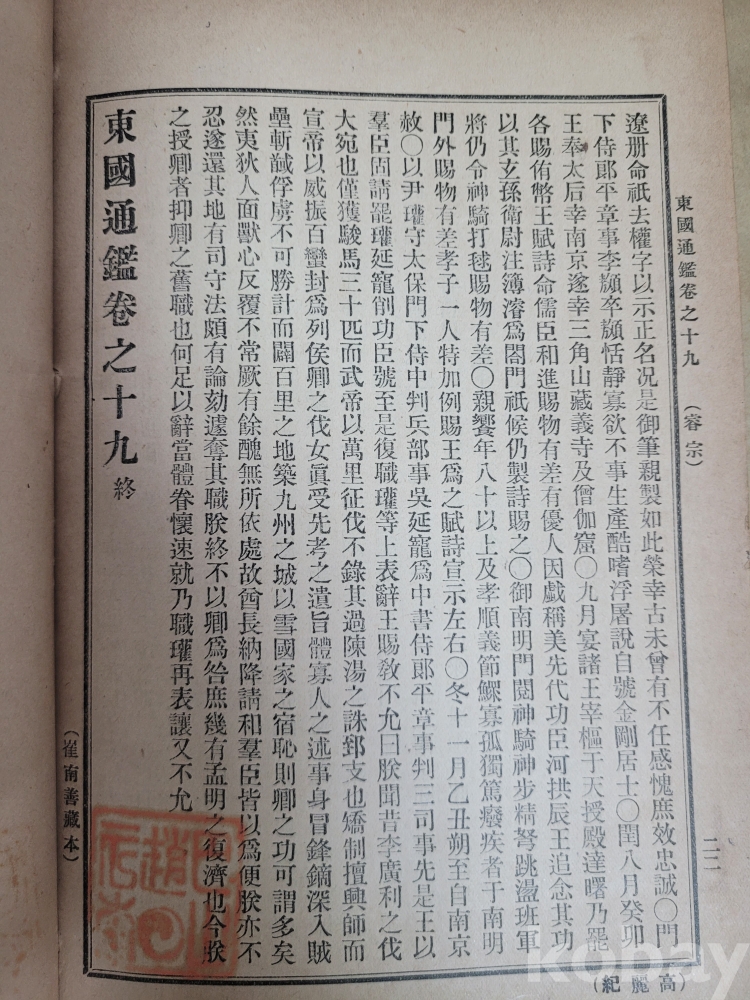 東國通鑑卷之十九 (睿宗) 二二
遼册命祇去權字以示正名况是御筆親製如此榮幸古未曾有不任感愧庶效忠誠〇門
下侍郞平章事李䫨卒䫨恬靜寡欲不事生產酷嗜浮屠說自號金剛居士〇閏八月癸卯
王奉太后幸南京遂幸三角山藏義寺及僧伽窟〇九月宴諸王宰樞于天授殿達曙乃罷
各賜侑幣王賦詩命儒臣和進賜物有差有優人因戱稱美先代功臣河拱辰王追念其功
以其玄孫衛尉注簿濬爲閤門祇候仍製詩賜之〇御南明門閱神騎神步精弩跳盪班軍
將仍令神騎打毬賜物有差〇親饗年八十以上及孝順義節鰥寡孤獨篤癈疾者于南明
門外賜物有差孝子一人特加例賜王爲之賦詩宣示左右〇冬十一月乙丑朔至自南京
赦〇以尹瓘守太保門下侍中判兵部事吳延寵爲中書侍郞平章事判三司事先是王以
羣臣固請罷瓘延寵削功臣號至是復職瓘等上表辭王賜敎不允曰朕聞昔李廣利之伐
大宛也僅獲駿馬三十匹而武帝以萬里征伐不錄其過陳湯之誅郅支也矯制擅興師而
宣帝以威振百蠻封爲列侯卿之伐女眞受先考之遺旨體寡人之述事身冒鋒鏑深入賊
壘斬馘俘虜不可勝計而闢百里之地築九州之城以雪國家之宿恥則卿之功可謂多矣
然夷狄人面獸心反覆不常厥有餘醜無所依處故酋長納降請和羣臣皆以爲便朕亦不
忍遂還其地有司守法頗有論劾遽奪其職朕終不以卿爲咎庶幾有孟明之復濟也今朕
之授卿者抑卿之舊職也何足以辭當體眷懷速就乃職瓘再表讓又不允
東國通鑑卷之十九 終
(崔南善藏本)
(高麗紀)
kobay